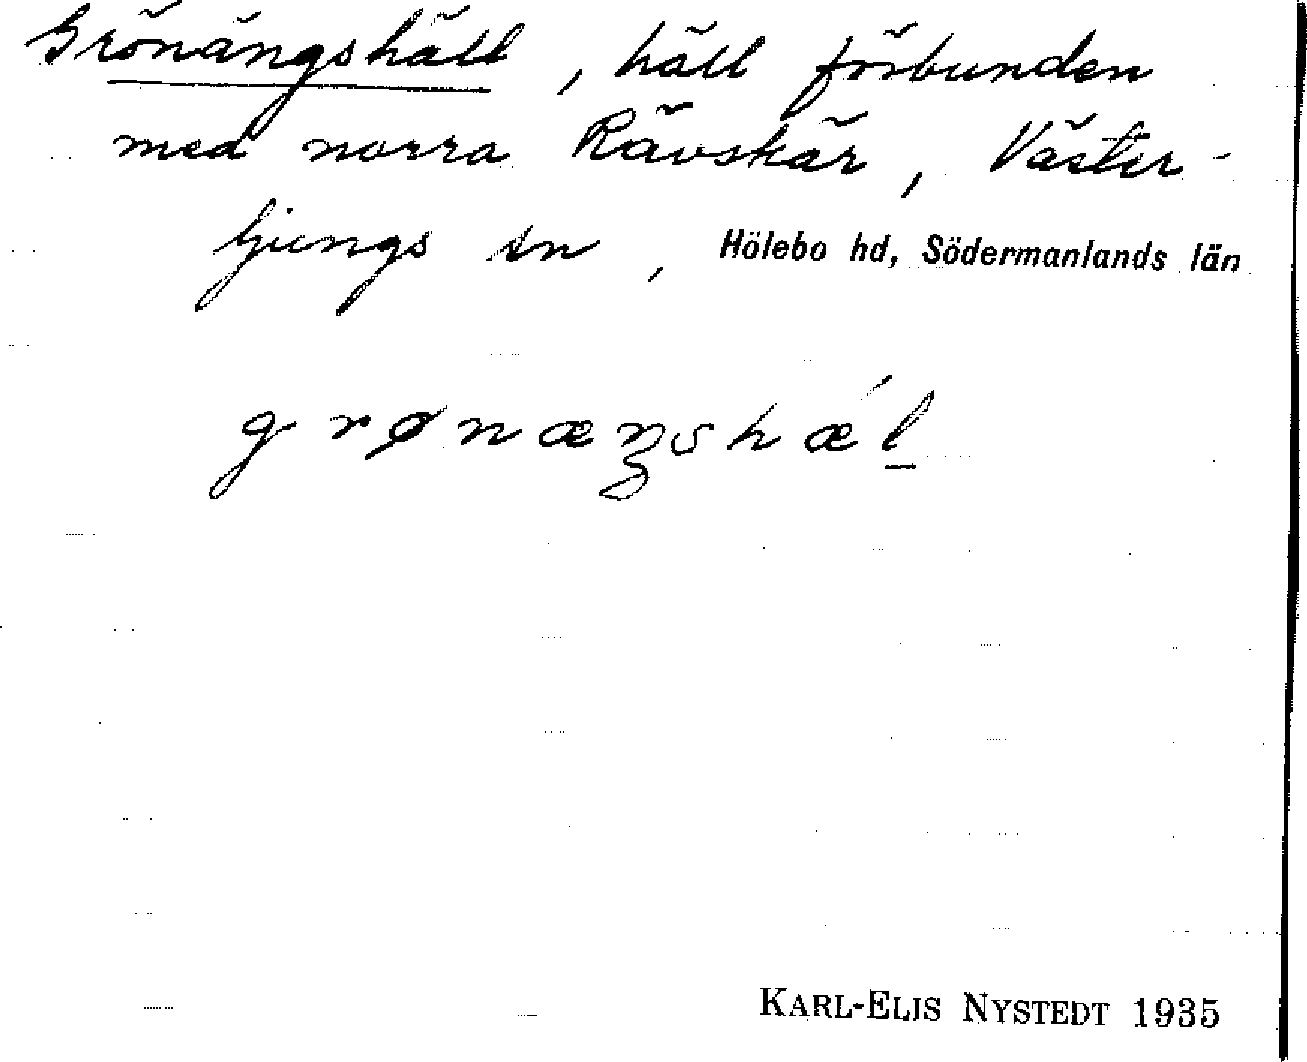 Grönängshäll, häll förbunden
med norra Rävskär, Väster-
ljungs sn, Hölebo hd, Södermanlands län
grønæŋshǽl̲
KARL-ELIS NYSTEDT 1935